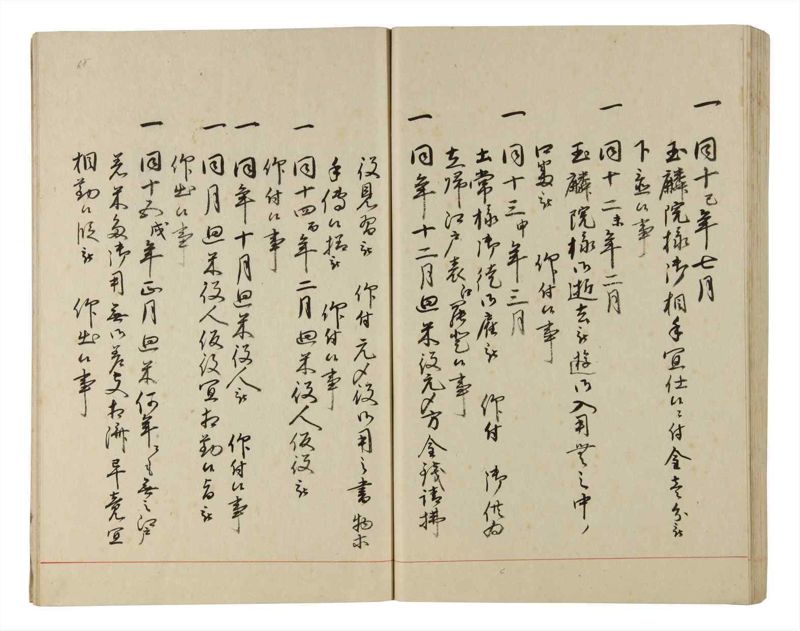 一 同十巳年七月
玉麟院様御相手宜仕候ニ付金壱分被
下置候事
一 同十二未年二月
玉麟院様御逝去被遊御入用無之中ノ
口番被 仰付候事
一 同十三申年三月
土常様御徒御雇被 仰付 御供為
立帰江戸表江罷登候事
一 同年十二月廻米役元〆方金銭請払
役見習被 仰付元〆役御用之書物等
手伝候様被 仰付候事
一 同十四酉年二月廻米役人仮役被
仰付候事
一 同年十月廻米役人被 仰付候事
一 同月廻米役人仮役宜相勤候旨被
仰出候事
一 同十五戌年正月廻米何年ニも無之
若米多御用無御差支相済早竟宜
相勤候段被 仰出候事